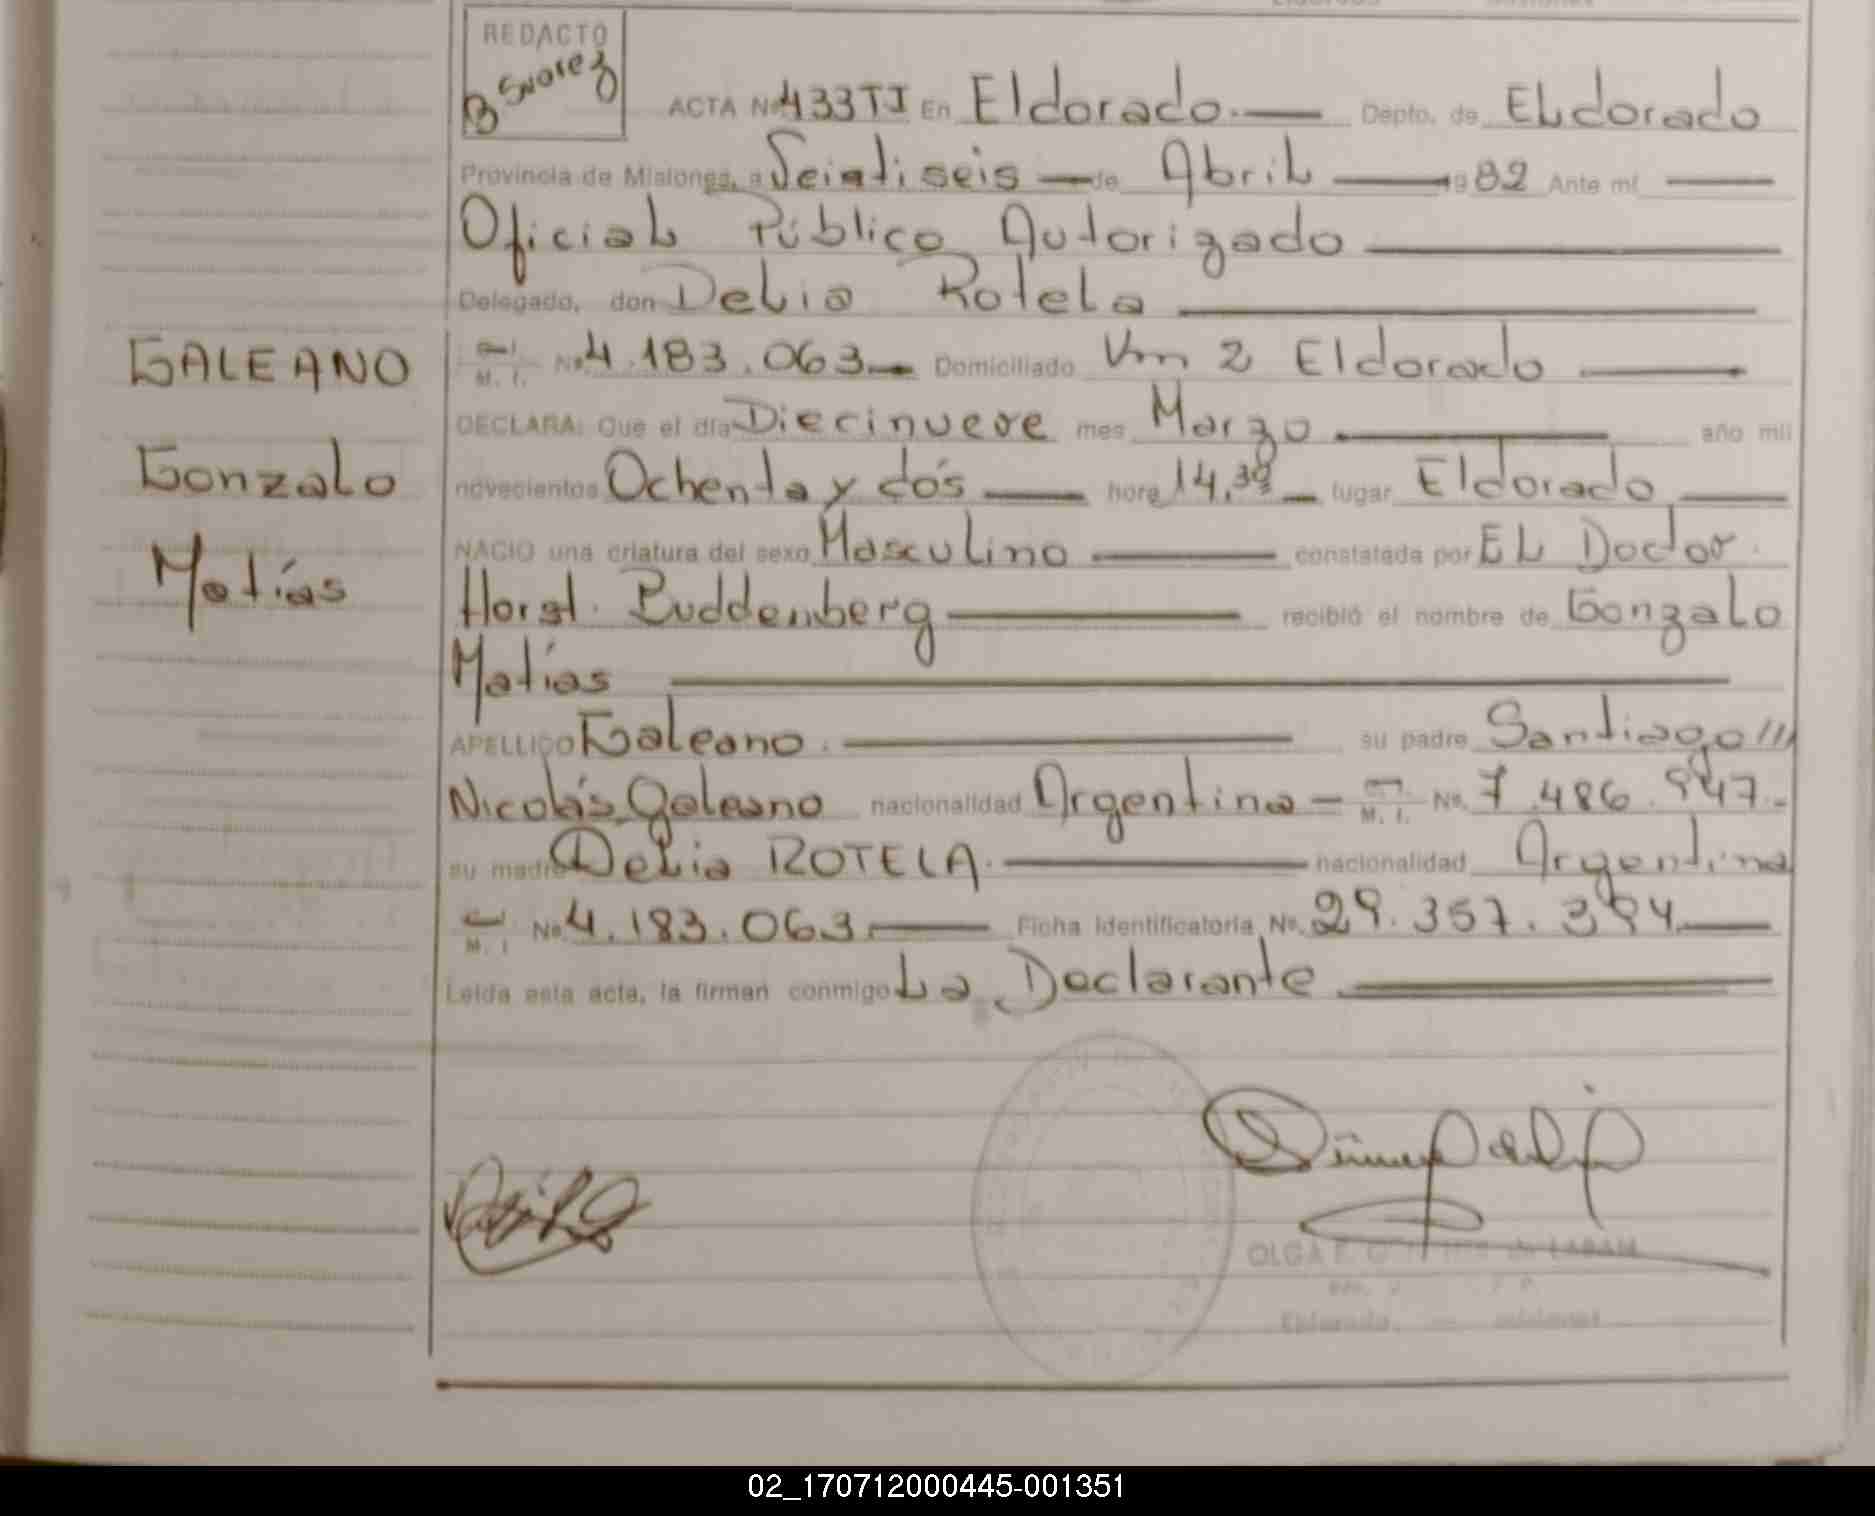 REDACTO
B Suarez
ACTA Nº 433TI En Eldorado.— Depto. de ELdorado
Provincia de Misiones, a Veintiseis — de Abril — 1982 Ante mí —
Oficial Público Autorizado —
Delegado, don Delia Rotela —
GALEANO
M. I. Nº 4.183.063— Domiciliado Km 2 Eldorado —
DECLARA: Que el día Diecinueve mes Marzo — año mil
Gonzalo
novecientos Ochenta y dós — hora 14,30 — lugar Eldorado —
NACIO una criatura del sexo Masculino — constatada por EL Doctor
Matías
Horst Buddenberg — recibió el nombre de Gonzalo
Matías —
APELLIDO Galeano. — su padre Santiago
Nicolás Galeano nacionalidad Argentina — M. I. Nº 7.486.947.-
su madre Delia ROTELA. — nacionalidad Argentina
M. I Nº 4.183.063 — Ficha Identificatoria Nº 29.357.394 —
Leída esta acta, la firman conmigo La Declarante —
OLGA E. de LABAN
Eldorado, Misiones
02_170712000445-001351